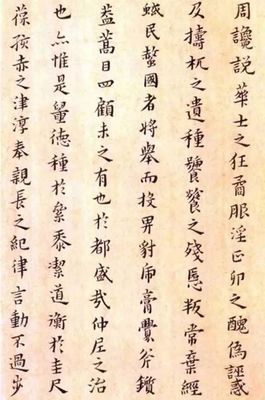 周讒說華士之狂矞服淫正卯之醜偽誣惑
及擣杌之遺種饕餮之殘慝叛常棄經
蜮民螫國者將舉而投畀豺虎膏釁斧鑕
益蒿目四顧未之有也於都盛哉仲尼之治
也亦惟是鬯德種於絫黍潔道衡於圭尺
葆孩赤之津淳奉親長之紀律言動不過步